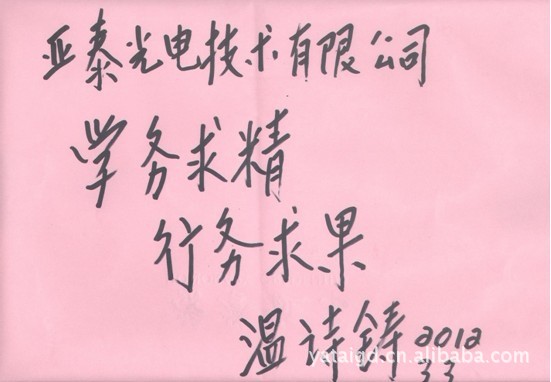 亚泰光电技术有限公司
学务求精
行务求果
温诗铸 2012
3.3
yataigd.cn.alibaba.com